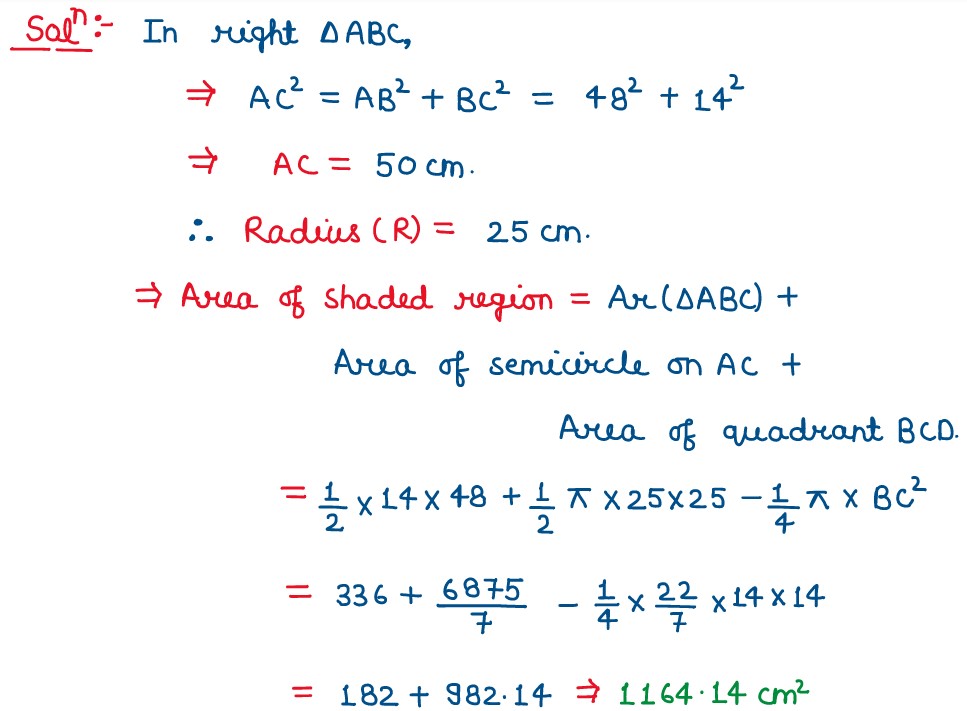 Solⁿ:- In right ΔABC,
⇒ AC² = AB² + BC² = 48² + 14²
⇒ AC = 50 cm.
∴ Radius (R) = 25 cm.
⇒ Area of shaded region = Ar(ΔABC) +
Area of semicircle on AC +
Area of quadrant BCD.
= 1/2 × 14 × 48 + 1/2 π × 25 × 25 - 1/4 π × BC²
= 336 + 6875/7 - 1/4 × 22/7 × 14 × 14
= 182 + 982.14 ⇒ 1164.14 cm²